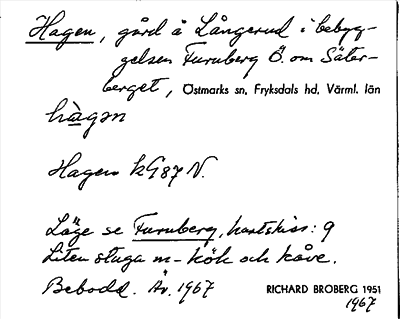 Hagen, gård å Långerud i bebyg-
gelsen Furuberg Ö. om Säter-
berget, Östmarks sn, Fryksdals hd, Värml. län
hàgən
Hagen kG87 N.
Läge se Furuberg, kartskiss: 9
Liten stuga m- kök och kåve.
Bebodd. Äv. 1967
RICHARD BROBERG 1951
1967